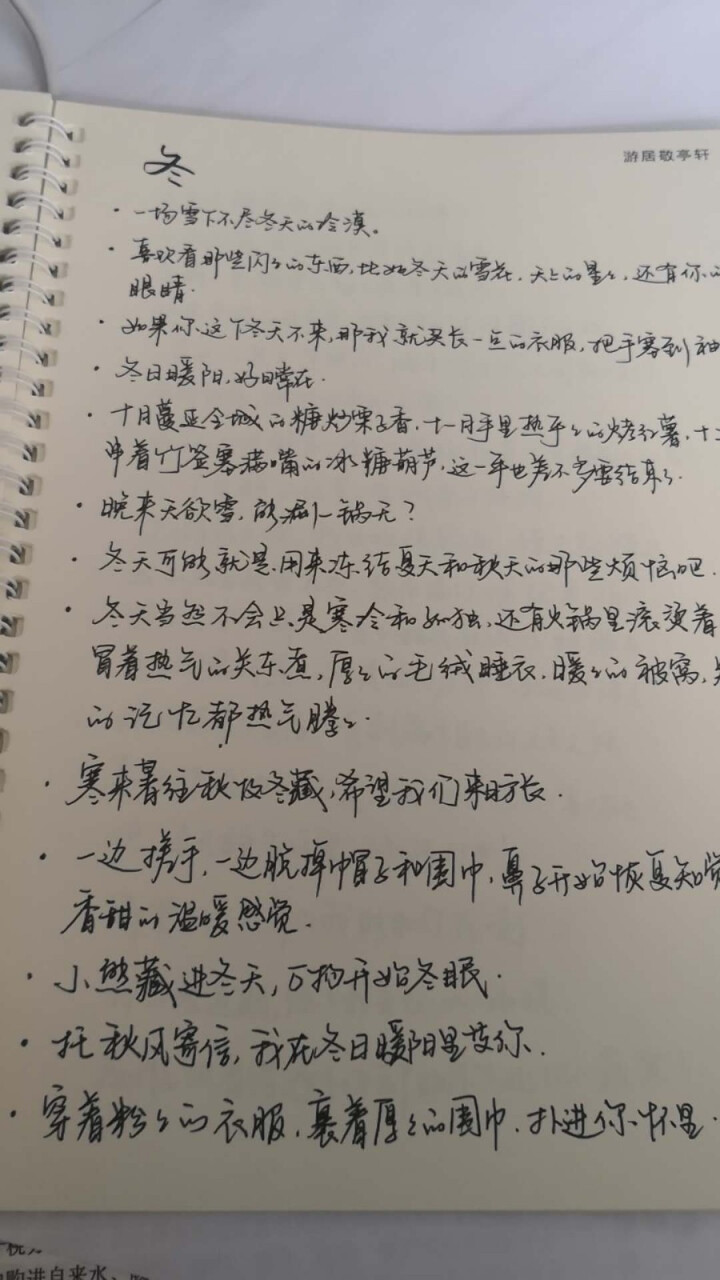 游居敬亭轩
冬
· 一场雪下不尽冬天的冷漠。
· 喜欢看那些闪々的东西,比如冬天的雪花,天上的星々,还有你的
眼睛.
· 如果你这个冬天不来,那我就买长一点的衣服,把手塞到袖
· 冬日暖阳,好日常在.
· 十月蔓延全城的糖炒栗子香,十一月手里热乎々的烤红薯,十二
串着竹签塞满嘴的冰糖葫芦,这一年也差不多要结束了.
· 晚来天欲雪,能涮一锅无?
· 冬天可能就是用来冻结夏天和秋天的那些烦恼吧.
· 冬天当然不会只是寒冷和孤独,还有火锅里滚烫着
冒着热气的关东煮,厚々的毛绒睡衣.暖々的被窝,
的记忆都热气腾々.
· 寒来暑往秋收冬藏,希望我们来日方长.
· 一边搓手,一边脱掉帽子和围巾,鼻子开始恢复知觉
香甜的温暖感觉.
· 小熊藏进冬天,万物开始冬眠.
· 托秋风寄信,我在冬日暖阳里等你.
· 穿着粉々的衣服,裹着厚々的围巾.扑进你怀里.
进自来水、